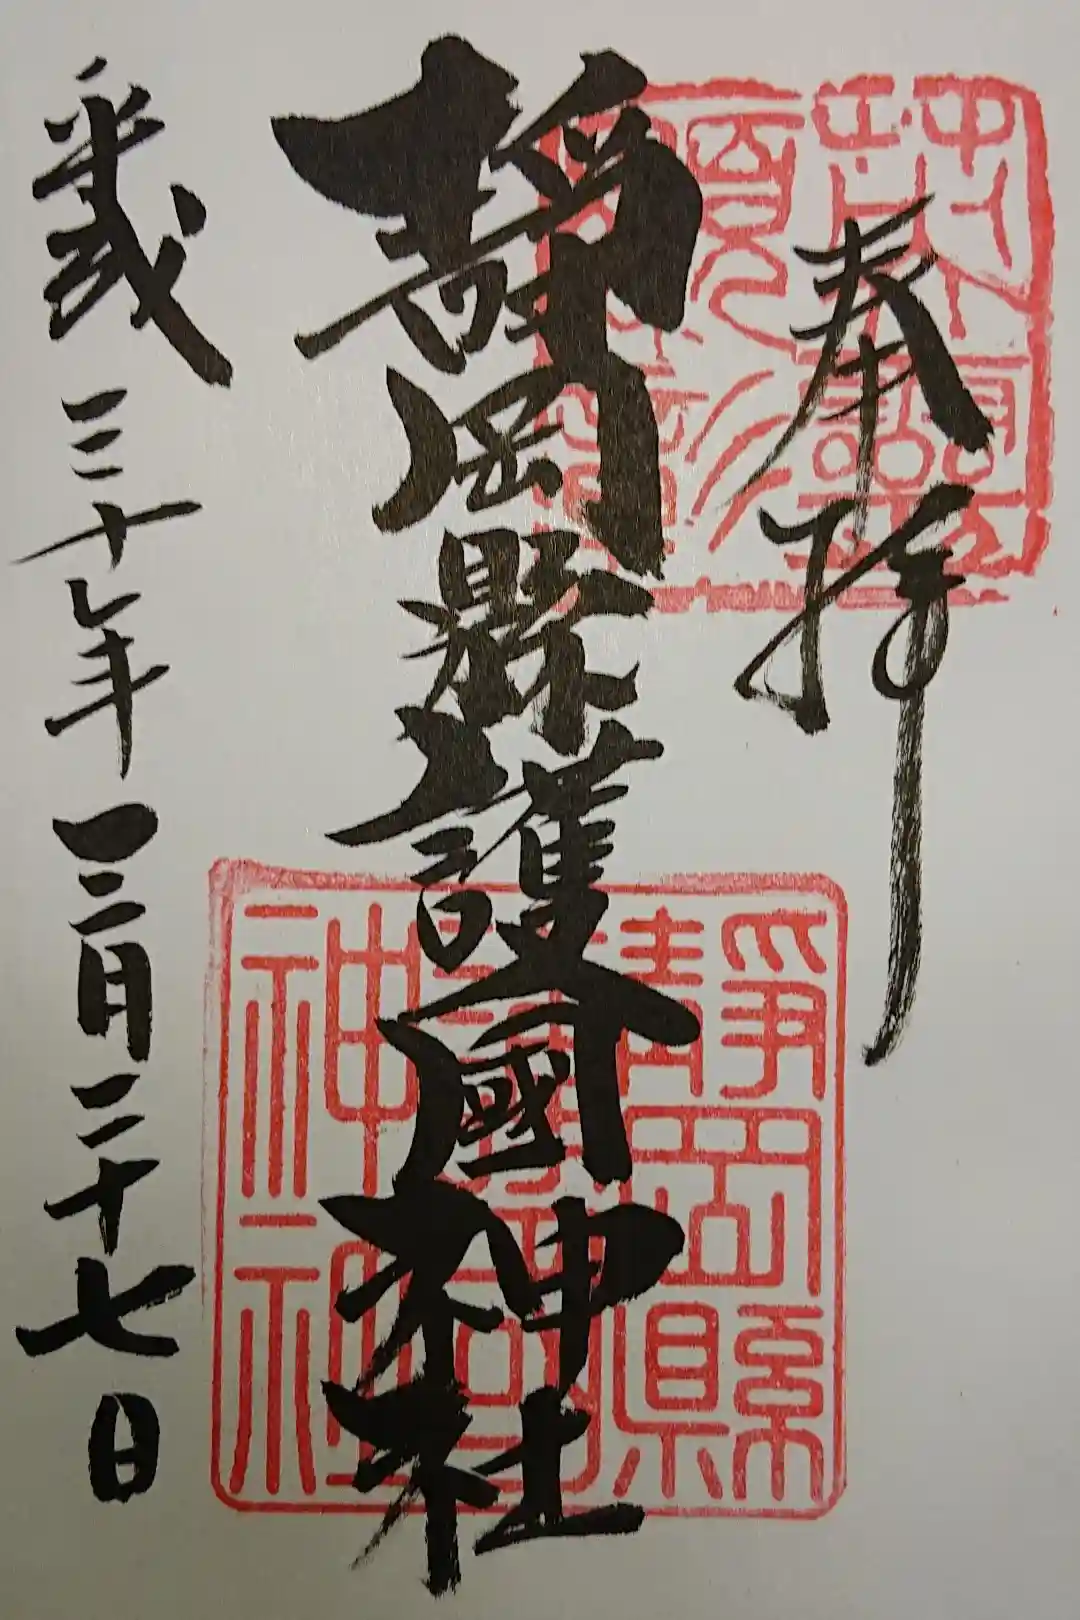 奉拝
靜岡縣護國神社
平成三十年三月二十七日
靜岡縣
護國
神社